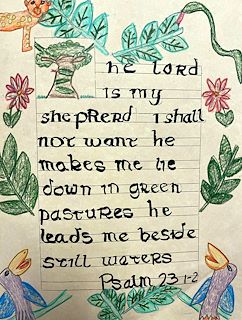 he Lord
is my
shepherd I shall
not want he
makes me lie
down in green
pastures he
leads me beside
still waters
Psalm 23 1-2